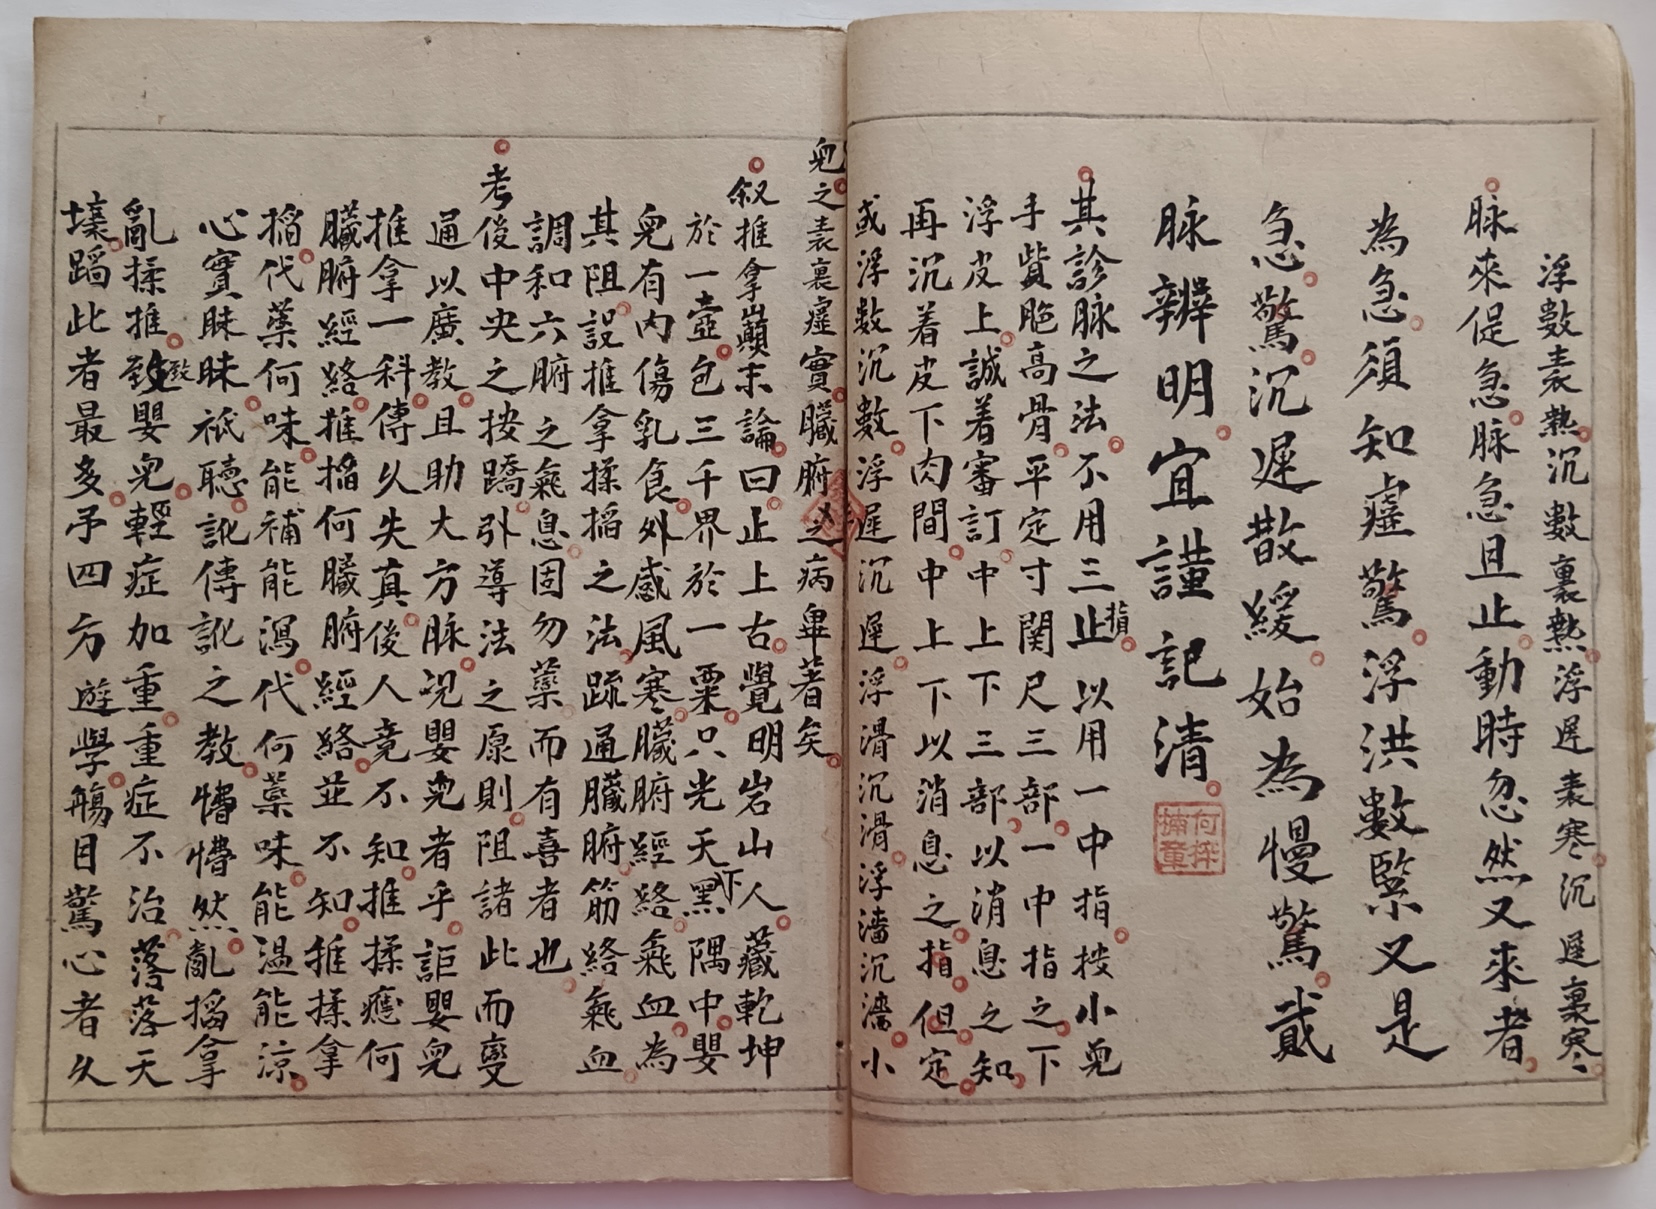 浮數表熱沉數裏熱浮遲表寒沉遲裏寒
脉來促急急脉急且止動時忽然又來者
為急須知虛驚浮洪數緊又是
急驚沉遲散緩始為慢驚貳
脉辨明宜謹記清
其診脉之法不用三止指以用一中指按小兒
手貲脆高骨平定寸関尺三部一中指之下
浮皮上誠着審訂中上下三部以消息之知
再沉着皮下肉間中上下以消息之指但定
或浮數沉數浮遲沉遲浮滑沉滑浮濇沉濇小
兒之表裏虛實臟腑之病畢著矣
叙推拿巔末論曰止上古覺明岩山人下藏乾坤
於一壺包三千界於一粟只光天黑隅中嬰
兒有內傷乳食外感風寒臟腑經絡氣血為
其阻設推拿揉搯之法疏通臟腑筋絡氣血
調和六腑之氣息固勿藥而有喜者也
考後中央之按蹻引導法之原則阻諸此而變
通以廣教且助大方脉况嬰兒者乎詎嬰兒
推拿一科傳久失真後人竟不知推揉癮何
臟腑經絡推搯何臟腑經絡並不知推揉拿
搯代藥何味能補能瀉代何藥味能温能涼
心實昧昧祇聽訛傳訛之教懵懵然亂搯拿
亂揉推致嬰兒輕症加重重症不治落落天
壤蹈此者最多予四方遊學觴目驚心者久
何探
楠童